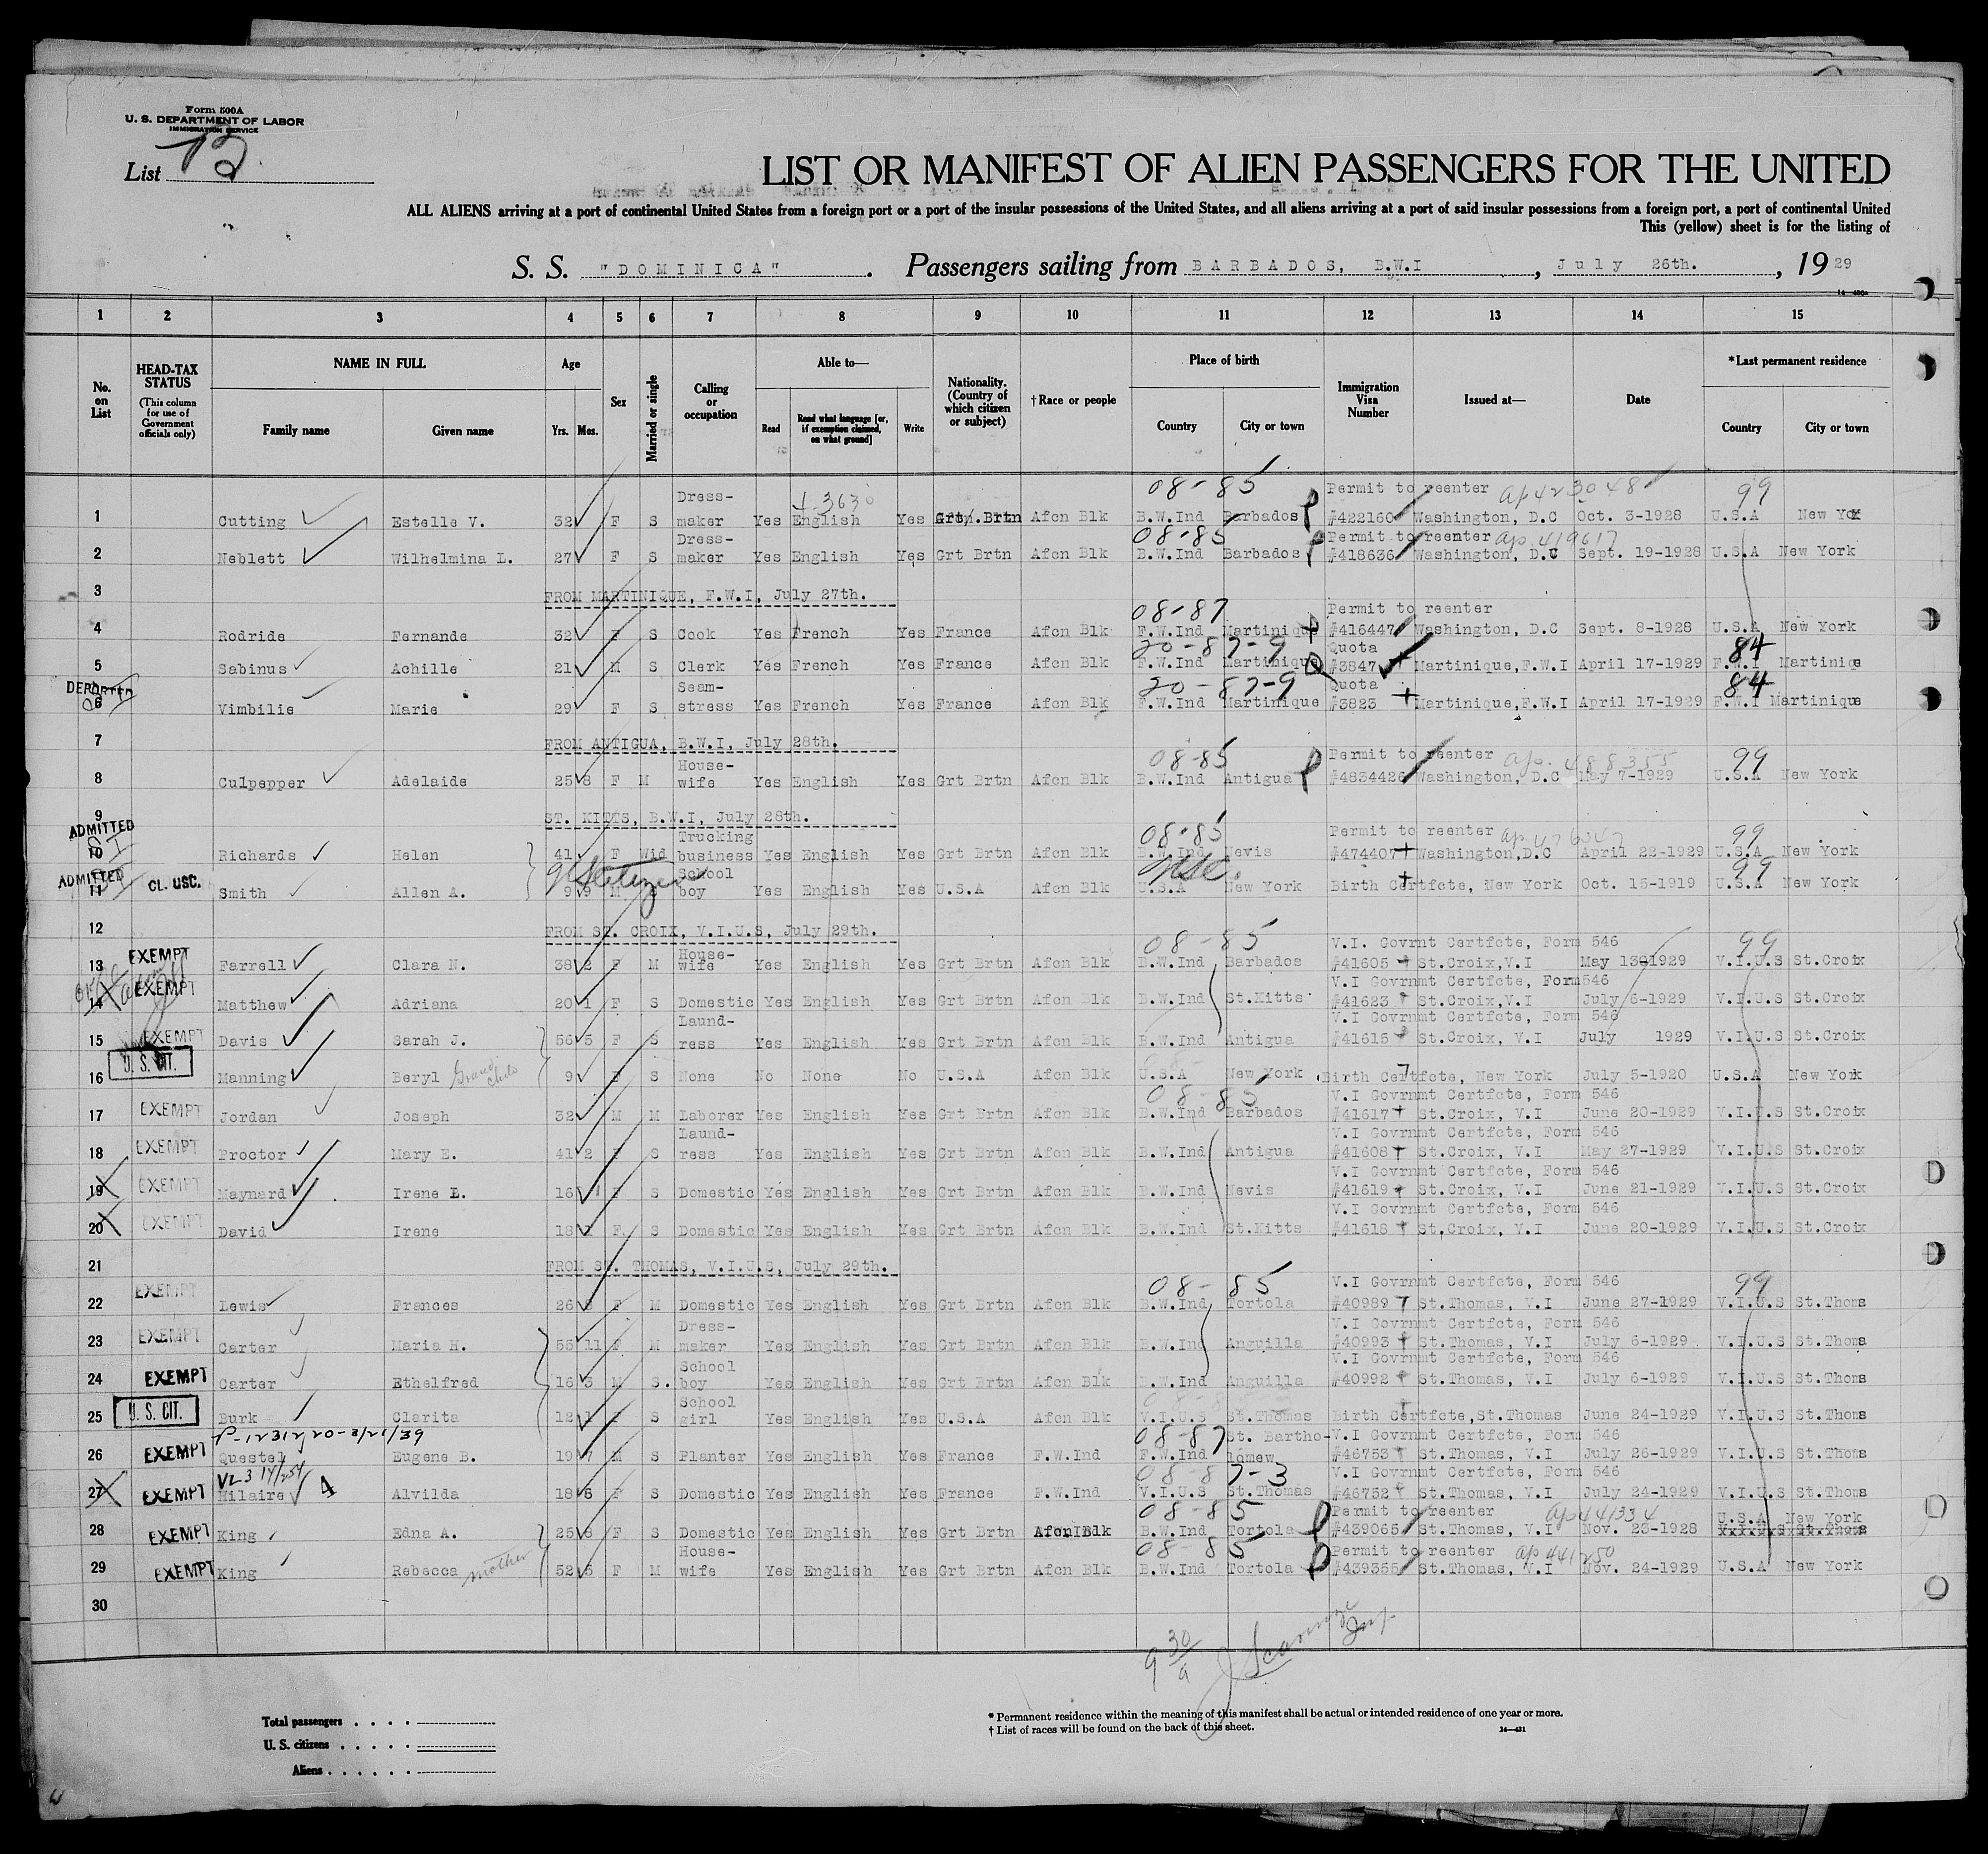 Form 500A
U. S. DEPARTMENT OF LABOR
IMMIGRATION SERVICE
List 12
LIST OR MANIFEST OF ALIEN PASSENGERS FOR THE UNITED
ALL ALIENS arriving at a port of continental United States from a foreign port or a port of the insular possessions of the United States, and all aliens arriving at a port of said insular possessions from a foreign port, a port of continental United
This (yellow) sheet is for the listing of
S. S. "DOMINICA" . Passengers sailing from BARBADOS, B.W.I , July 26th. , 19 29
1 2 3 4 5 6 7 8 9 10 11 12 13 14 15
No. on List
HEAD-TAX STATUS (This column for use of Government officials only)
NAME IN FULL Family name Given name
Age Yrs. Mos.
Sex
Married or single
Calling or occupation
Able to— Read Read what language [or, if exemption claimed, on what ground] Write
Nationality. (Country of which citizen or subject)
† Race or people
Place of birth Country City or town
Immigration Visa Number
Issued at—
Date
*Last permanent residence Country City or town
08-85 Permit to reenter 99
1 Cutting Estelle V. 32 F S Dress-maker Yes English Yes Grt. Brtn Afcn Blk B.W.Ind Barbados #422160 Washington, D.C Oct. 3-1928 U.S.A New York
08-85 Permit to reenter ap. 419617
2 Neblett Wilhelmina L. 27 F S Dress-maker Yes English Yes Grt Brtn Afcn Blk B.W.Ind Barbados #418636 Washington, D.C Sept. 19-1928 U.S.A New York
3 FROM MARTINIQUE, F.W.I, July 27th.
08-87 Permit to reenter
4 Rodride Fernande 32 F S Cook Yes French Yes France Afcn Blk F.W.Ind Martinique #416447 Washington, D.C Sept. 8-1928 U.S.A New York
20-87-9 Quota 84
5 Sabinus Achille 21 M S Clerk Yes French Yes France Afcn Blk F.W.Ind Martinique #3847 Martinique, F.W.I April 17-1929 F.W.I Martiniqe
DEPORTED 20-87-9 Quota 84
6 Vimbilie Marie 29 F S Seam-stress Yes French Yes France Afcn Blk F.W.Ind Martinique #3823 Martinique, F.W.I April 17-1929 F.W.I Martinique
7 FROM ANTIGUA, B.W.I, July 28th.
08-85 Permit to reenter ap. 488355 99
8 Culpepper Adelaide 25 8 F M House-wife Yes English Yes Grt Brtn Afcn Blk B.W.Ind Antigua #4834426 Washington, D.C May 7-1929 U.S.A New York
9 ST. KITTS, B.W.I, July 28th.
ADMITTED SI 08-85 Permit to reenter 99
10 Richards Helen 41 F Wid Trucking business Yes English Yes Grt Brtn Afcn Blk B.W.Ind Nevis #474407 Washington, D.C April 22-1929 U.S.A New York
ADMITTED SI CL. USC. citizen USC. 99
11 Smith Allen A. 9 9 M S School boy Yes English Yes U.S.A Afcn Blk U.S.A New York Birth Certfcte, New York Oct. 15-1919 U.S.A New York
12 FROM ST. CROIX, V.I.U.S, July 29th.
EXEMPT 08-85 V.I. Govrnt Certfcte, Form 546 99
13 Farrell Clara N. 38 2 F M House-wife Yes English Yes Grt Brtn Afcn Blk B.W.Ind Barbados #41605 St.Croix,V.I May 13-1929 V.I.U.S St.Croix
EXEMPT V.I Govrnmt Certfcte, Form546
14 Matthew Adriana 20 1 F S Domestic Yes English Yes Grt Brtn Afcn Blk B.W.Ind St.Kitts #41623 St.Croix,V.I July 6-1929 V.I.U.S St.Croix
EXEMPT V.I Govrnmt Certfcte, Form 546
15 Davis Sarah J. 56 5 F S Laund-ress Yes English Yes Grt Brtn Afcn Blk B.W.Ind Antigua #41615 St.Croix, V.I July 1929 V.I.U.S St.Croix
U. S. CIT.
16 Manning Beryl Grand child 9 F S None No None No U.S.A Afcn Blk U.S.A New York Birth Certfcte, New York July 5-1920 U.S.A New York
08-85 V.I Govrnmt Certfcte, Form 546
17 EXEMPT Jordan Joseph 32 M M Laborer Yes English Yes Grt Brtn Afcn Blk B.W.Ind Barbados #41617 St.Croix, V.I June 20-1929 V.I.U.S St.Croix
V.I Govrnmt Certfcte, Form 546
18 EXEMPT Proctor Mary E. 41 2 F S Laund-ress Yes English Yes Grt Brtn Afcn Blk B.W.Ind Antigua #41608 St.Croix, V.I May 27-1929 V.I.U.S St.Croix
V.I Govrnmt Certfcte, Form 546
19 EXEMPT Maynard Irene E. 16 1 F S Domestic Yes English Yes Grt Brtn Afcn Blk B.W.Ind Nevis #41619 St.Croix, V.I June 21-1929 V.I.U.S St.Croix
V.I Govrnmt Certfcte, Form 546
20 EXEMPT David Irene 18 1 F S Domestic Yes English Yes Grt Brtn Afcn Blk B.W.Ind St.Kitts #41618 St.Croix, V.I June 20-1929 V.I.U.S St.Croix
21 FROM ST. THOMAS, V.I.U.S, July 29th.
EXEMPT 08-85 V.I Govrnmt Certfcte, Form 546 99
22 Lewis Frances 26 8 F M Domestic Yes English Yes Grt Brtn Afcn Blk B.W.Ind Tortola #40989 St.Thomas, V.I June 27-1929 V.I.U.S St.Thoms
V.I Govrnmt Certfcte, Form 546
23 EXEMPT Carter Maria H. 55 11 F M Dress-maker Yes English Yes Grt Brtn Afcn Blk B.W.Ind Anguilla #40993 St.Thomas, V.I July 6-1929 V.I.U.S St.Thoms
V.I Govrnmt Certfcte, Form 546
24 EXEMPT Carter Ethelfred 16 5 M S. School boy Yes English Yes Grt Brtn Afcn Blk B.W.Ind Anguilla #40992 St.Thomas, V.I July 6-1929 V.I.U.S St.Thoms
25 U. S. CIT. Burk Clarita 12 1 F S School girl Yes English Yes U.S.A Afcn Blk V.I.U.S St.Thomas Birth Certfcte,St.Thomas June 24-1929 V.I.U.S St.Thoms
08-87 V.I Govrnmt Certfcte, Form 546
26 EXEMPT Questel Eugene B. 19 7 M S Planter Yes English Yes France F.W.Ind F.W.Ind St. Bartho-lomew #46753 St.Thomas, V.I July 26-1929 V.I.U.S St.Thoms
08-87-3 V.I Govrnmt Certfcte, Form 546
27 EXEMPT Hilaire 4 Alvilda 18 6 F S Domestic Yes English Yes France F.W.Ind V.I.U.S St.Thomas #46752 St.Thomas, V.I July 24-1929 V.I.U.S St.Thoms
08-85 Permit to reenter ap441334
28 EXEMPT King Edna A. 25 8 F S Domestic Yes English Yes Grt Brtn Afcn Blk B.W.Ind Tortola #439065 St.Thomas, V.I Nov. 23-1928 U.S.A New York
08-85 Permit to reenter ap 441250
29 EXEMPT King Rebecca mother 52 5 F M House-wife Yes English Yes Grt Brtn Afcn Blk B.W.Ind Tortola #439355 St.Thomas, V.I Nov. 24-1929 U.S.A New York
30
Total passengers . . . .
U. S. citizens . . . . .
Aliens . . . . . .
* Permanent residence within the meaning of this manifest shall be actual or intended residence of one year or more.
† List of races will be found on the back of this sheet.
14—431